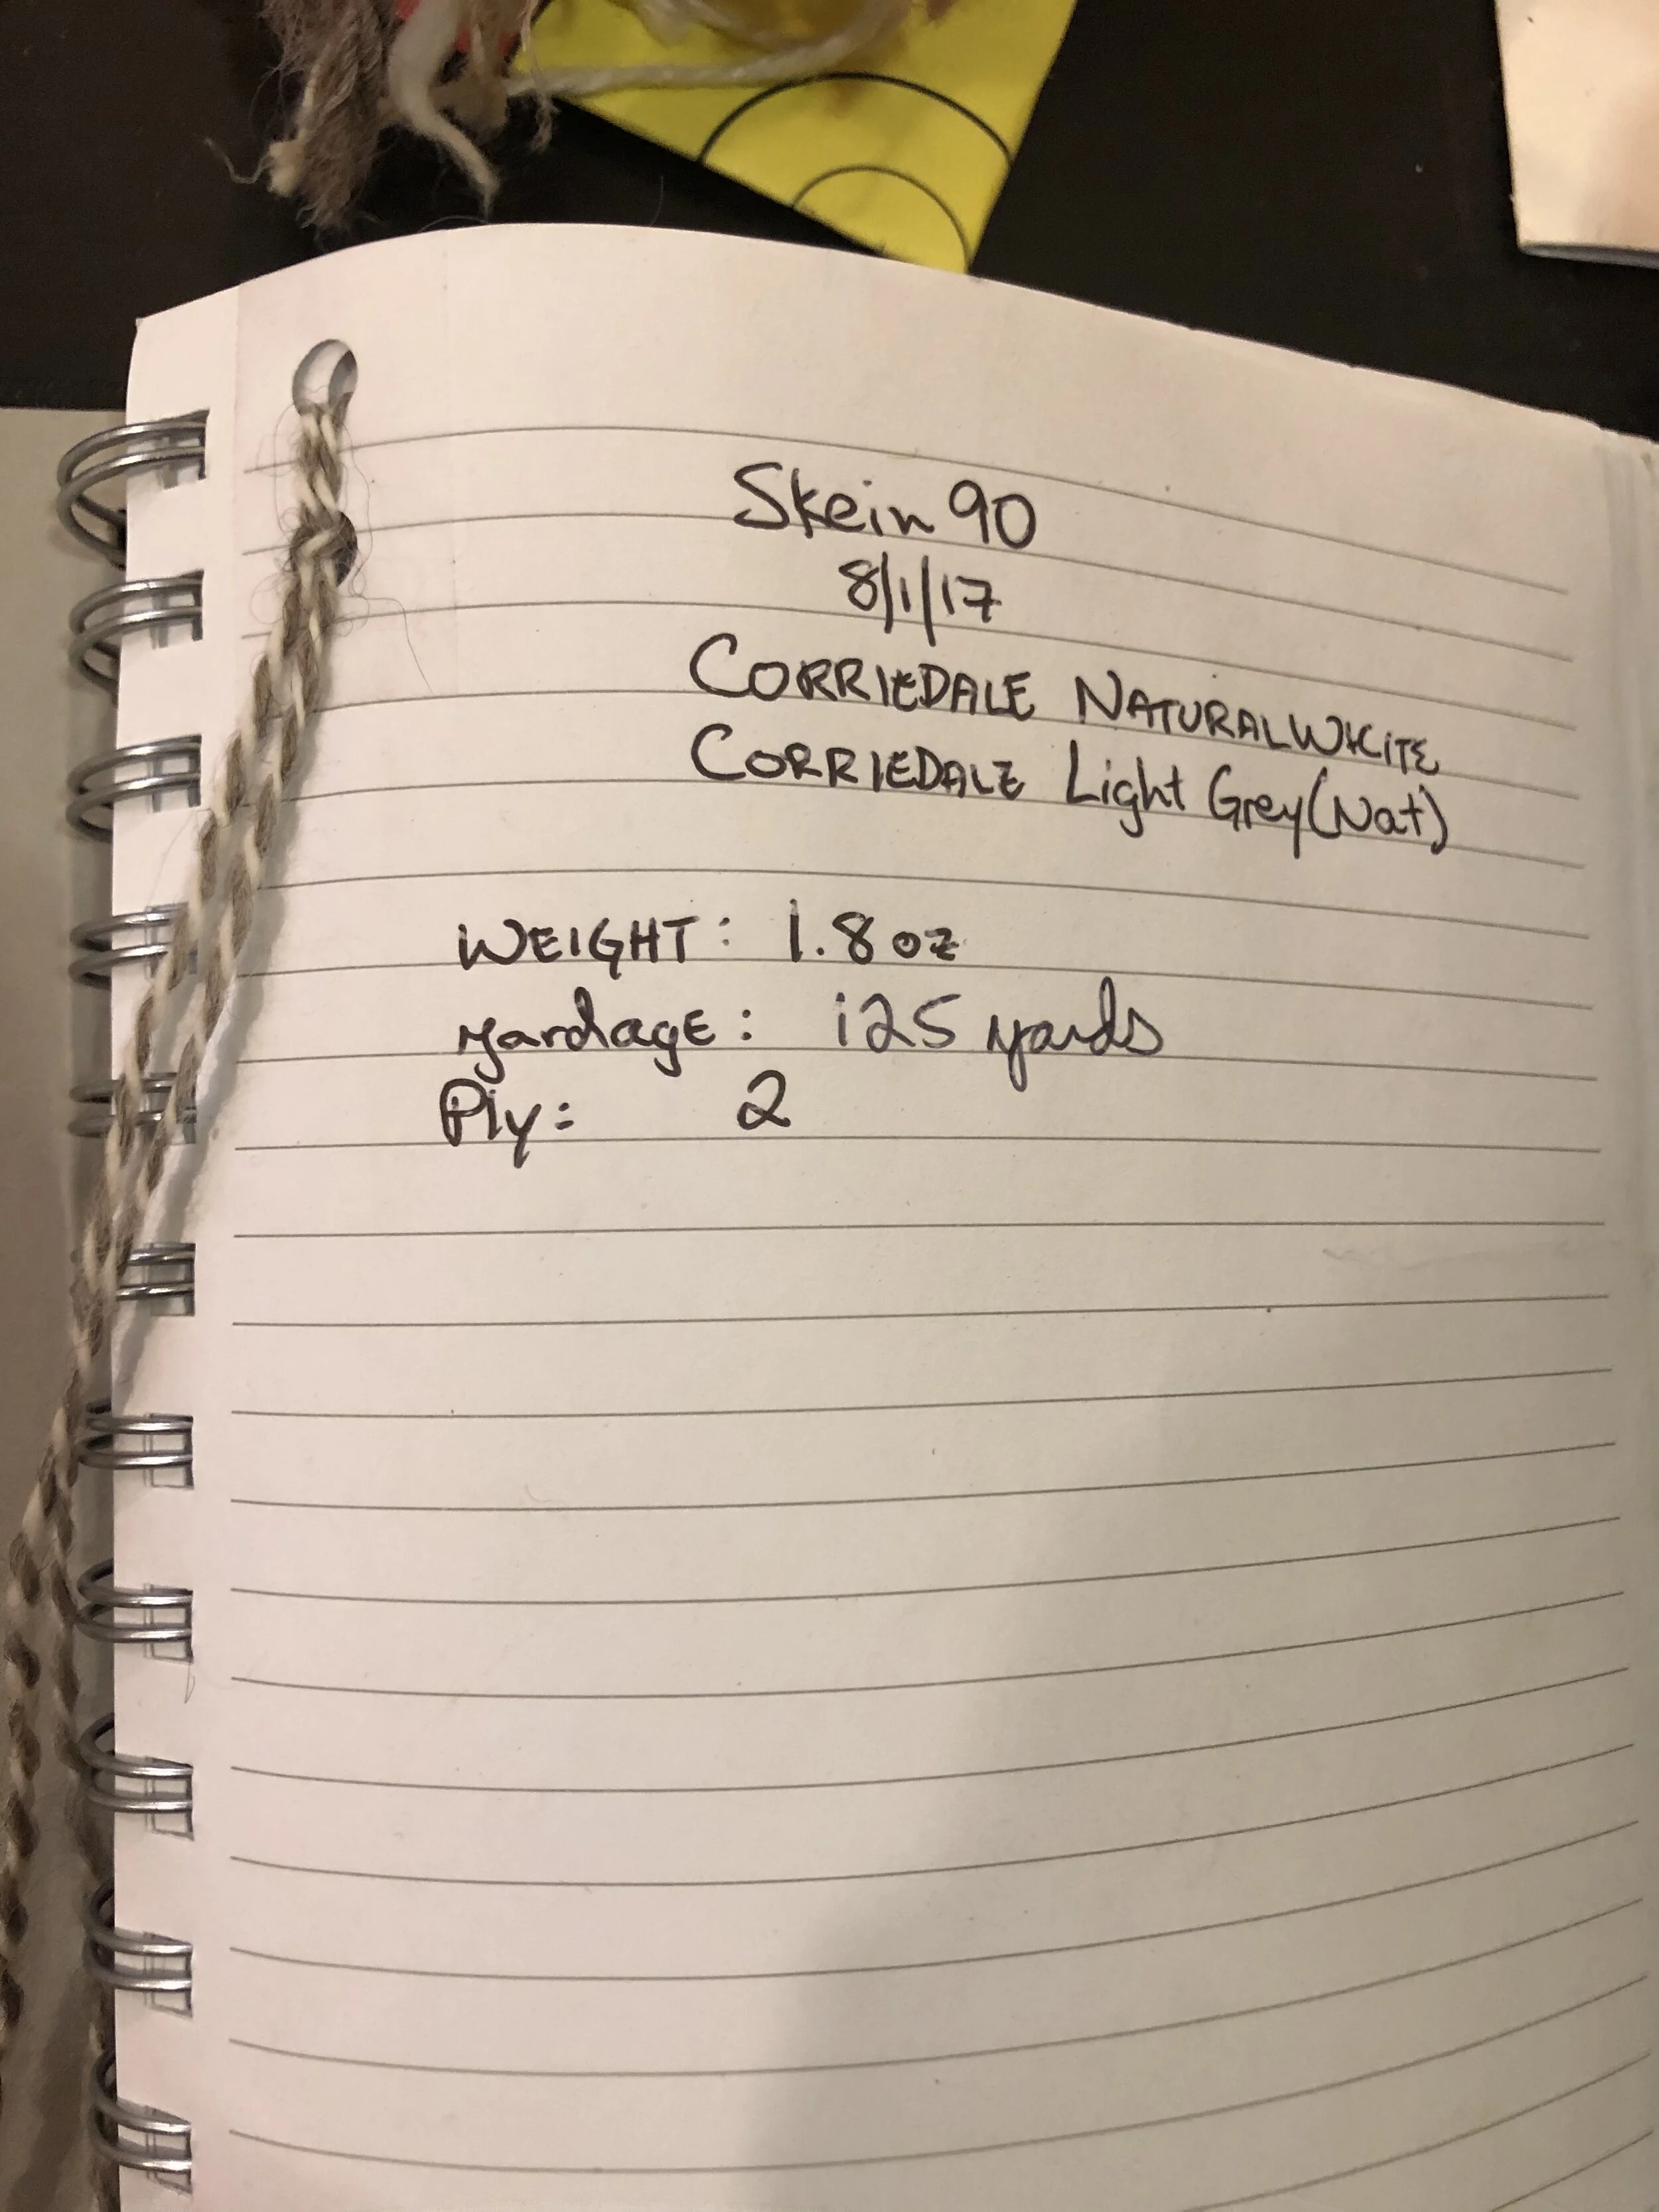 Skein 90
8/1/17
CORRIEDALE NATURAL WHITE
CORRIEDALE Light Grey (Nat)
WEIGHT: 1.8 oz
yardage: 125 yards
Ply: 2